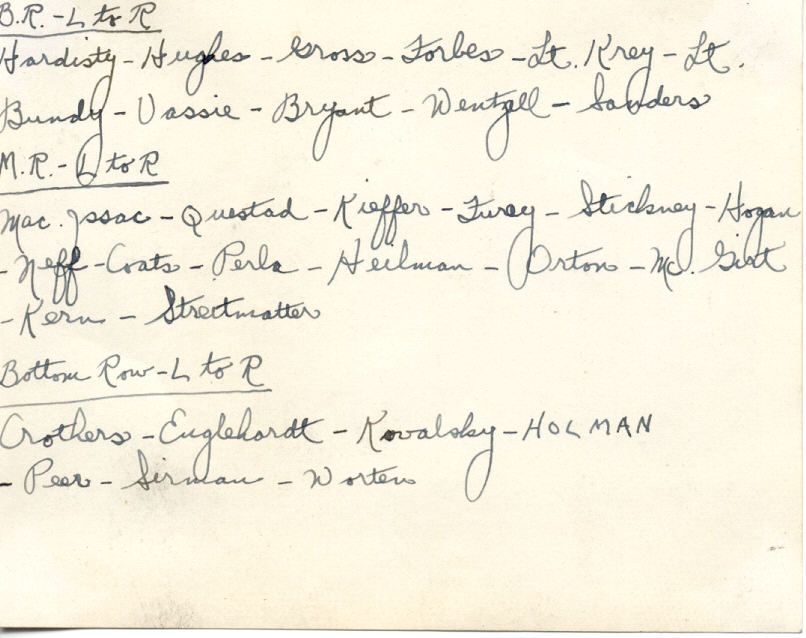 B.R. - L to R
Hardisty - Hughes - Gross - Forbes - Lt. Krey - Lt.
Bundy - Vassie - Bryant - Wentzell - Sanders
M.R. - L to R
Mac. Issac - Questad - Kieffer - Furey - Stickney - Hogan
- Neff - Coats - Perla - Heilman - Orton - Mc. Girt
- Kern - Streitmatter
Bottom Row - L to R
Crothers - Englehardt - Kovalsky - HOLMAN
- Peer - Sirman - Worten